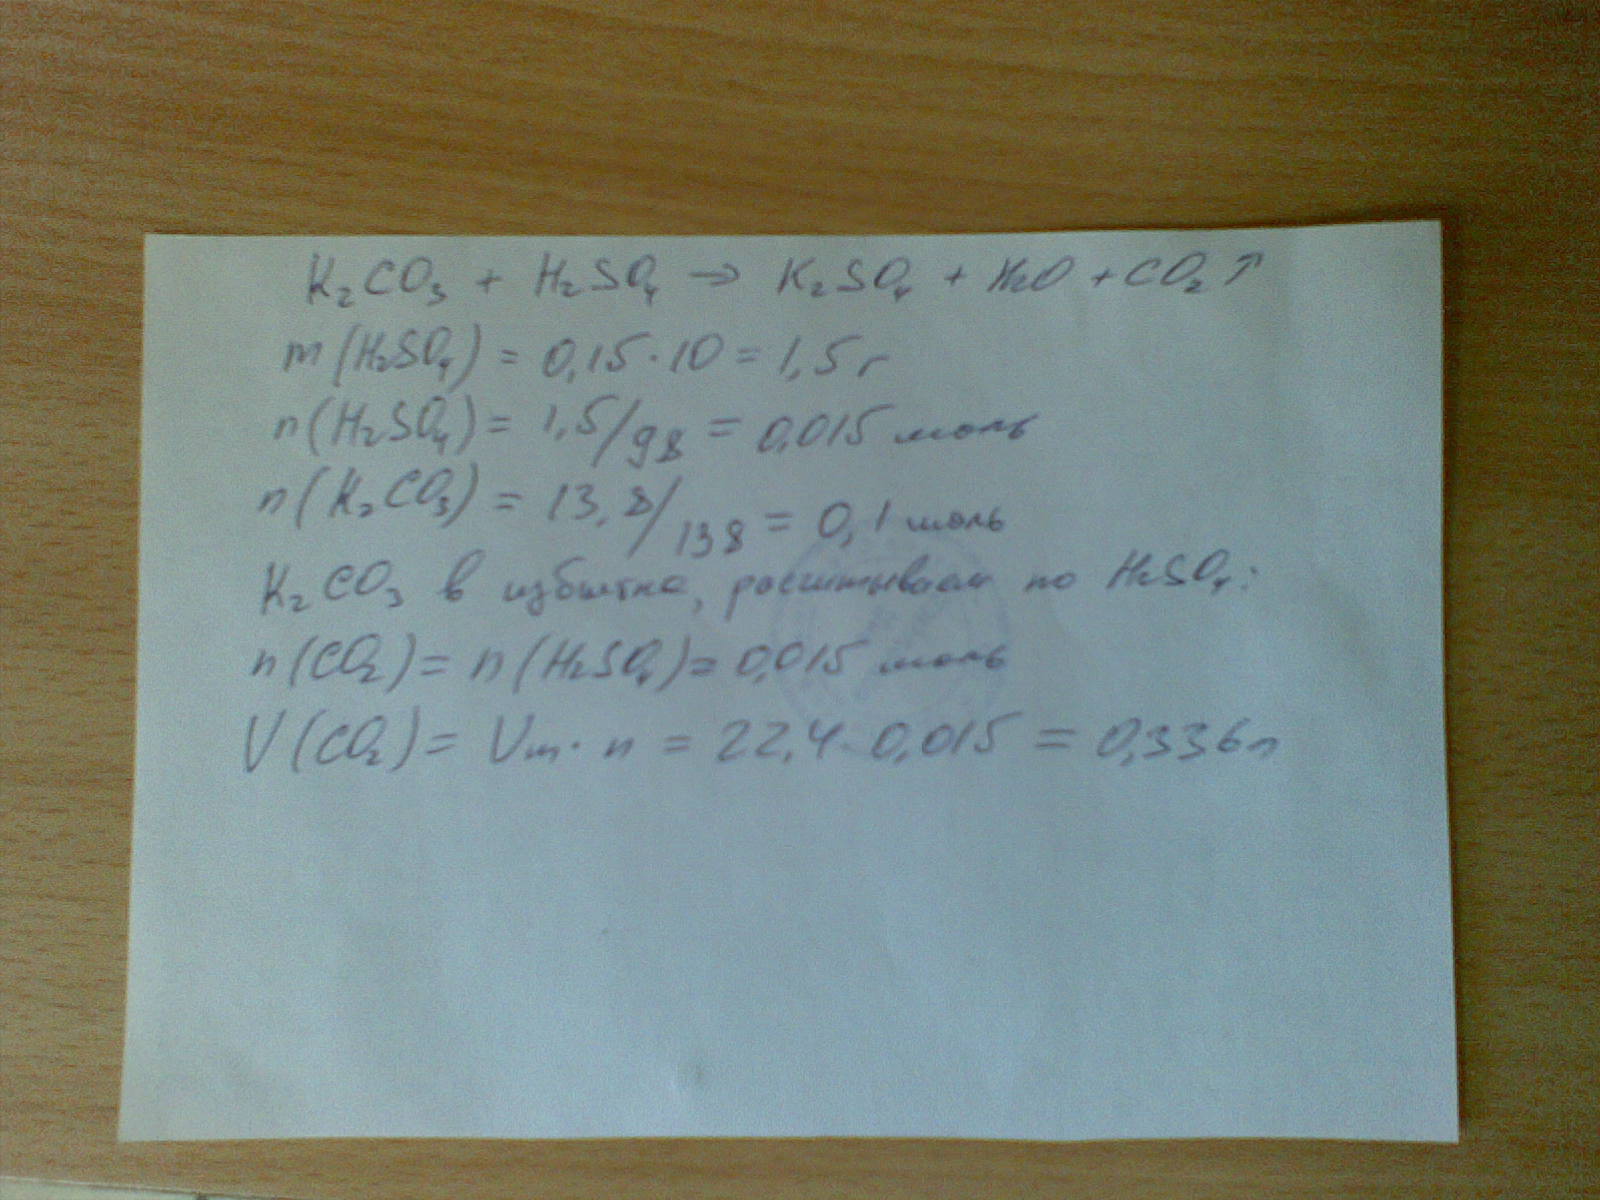 K₂CO₃ + H₂SO₄ → K₂SO₄ + H₂O + CO₂↑
m(H₂SO₄) = 0,15·10 = 1,5 г
n(H₂SO₄) = 1,5/98 = 0,015 моль
n(K₂CO₃) = 13,8/138 = 0,1 моль
K₂CO₃ в избытке, расчитываем по H₂SO₄:
n(CO₂) = n(H₂SO₄) = 0,015 моль
V(CO₂) = Vm·n = 22,4·0,015 = 0,336 л